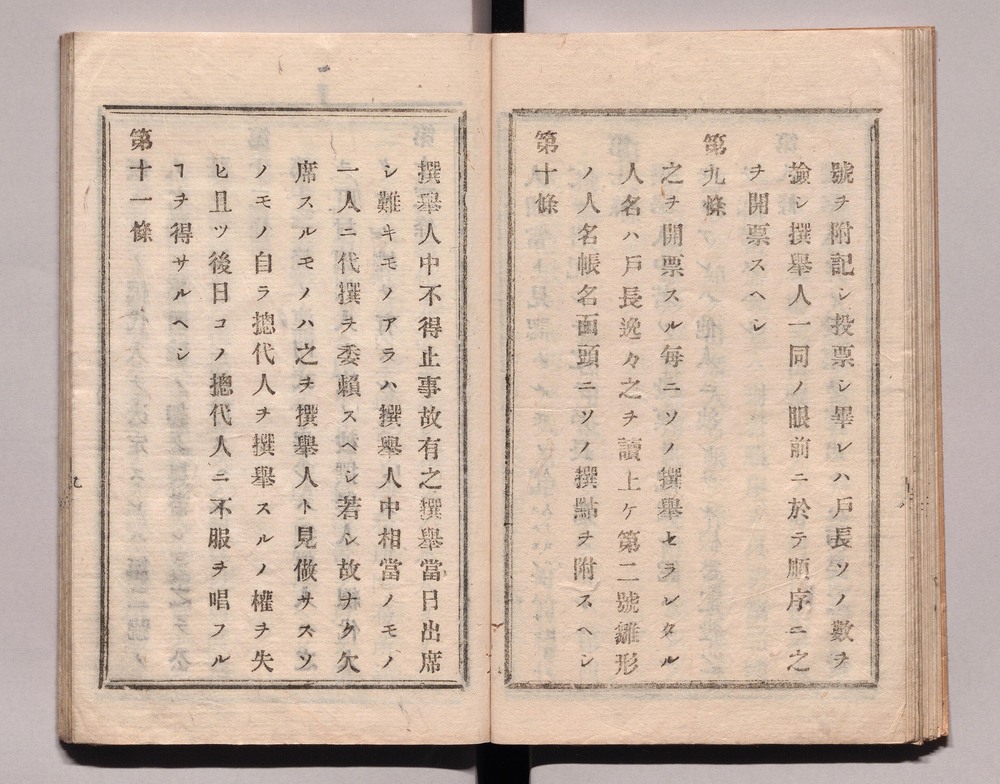 號ヲ附記シ投票シ畢レハ戸長ソノ數ヲ
撿シ撰擧人一同ノ眼前ニ於テ順序ニ之
ヲ開票スヘシ
第九條
之ヲ開票スル毎ニソノ撰擧セラレタル
人名ハ戸長逸々之ヲ讀上ケ第二號雛形
ノ人名帳名面頭ニソノ撰點ヲ附スヘシ
第十條
撰擧人中不得止事故有之撰擧當日出席
シ難キモノアラハ撰擧人中相當ノモノ
一人ニ代撰ヲ委賴スヘシ若シ故ナク欠
席スルモノハ之ヲ撰擧人ト見做サスソ
ノモノ自ラ摠代人ヲ撰擧スルノ權ヲ失
ヒ且ツ後日コノ摠代人ニ不服ヲ唱フル
ヿヲ得サルヘシ
第十一條
九